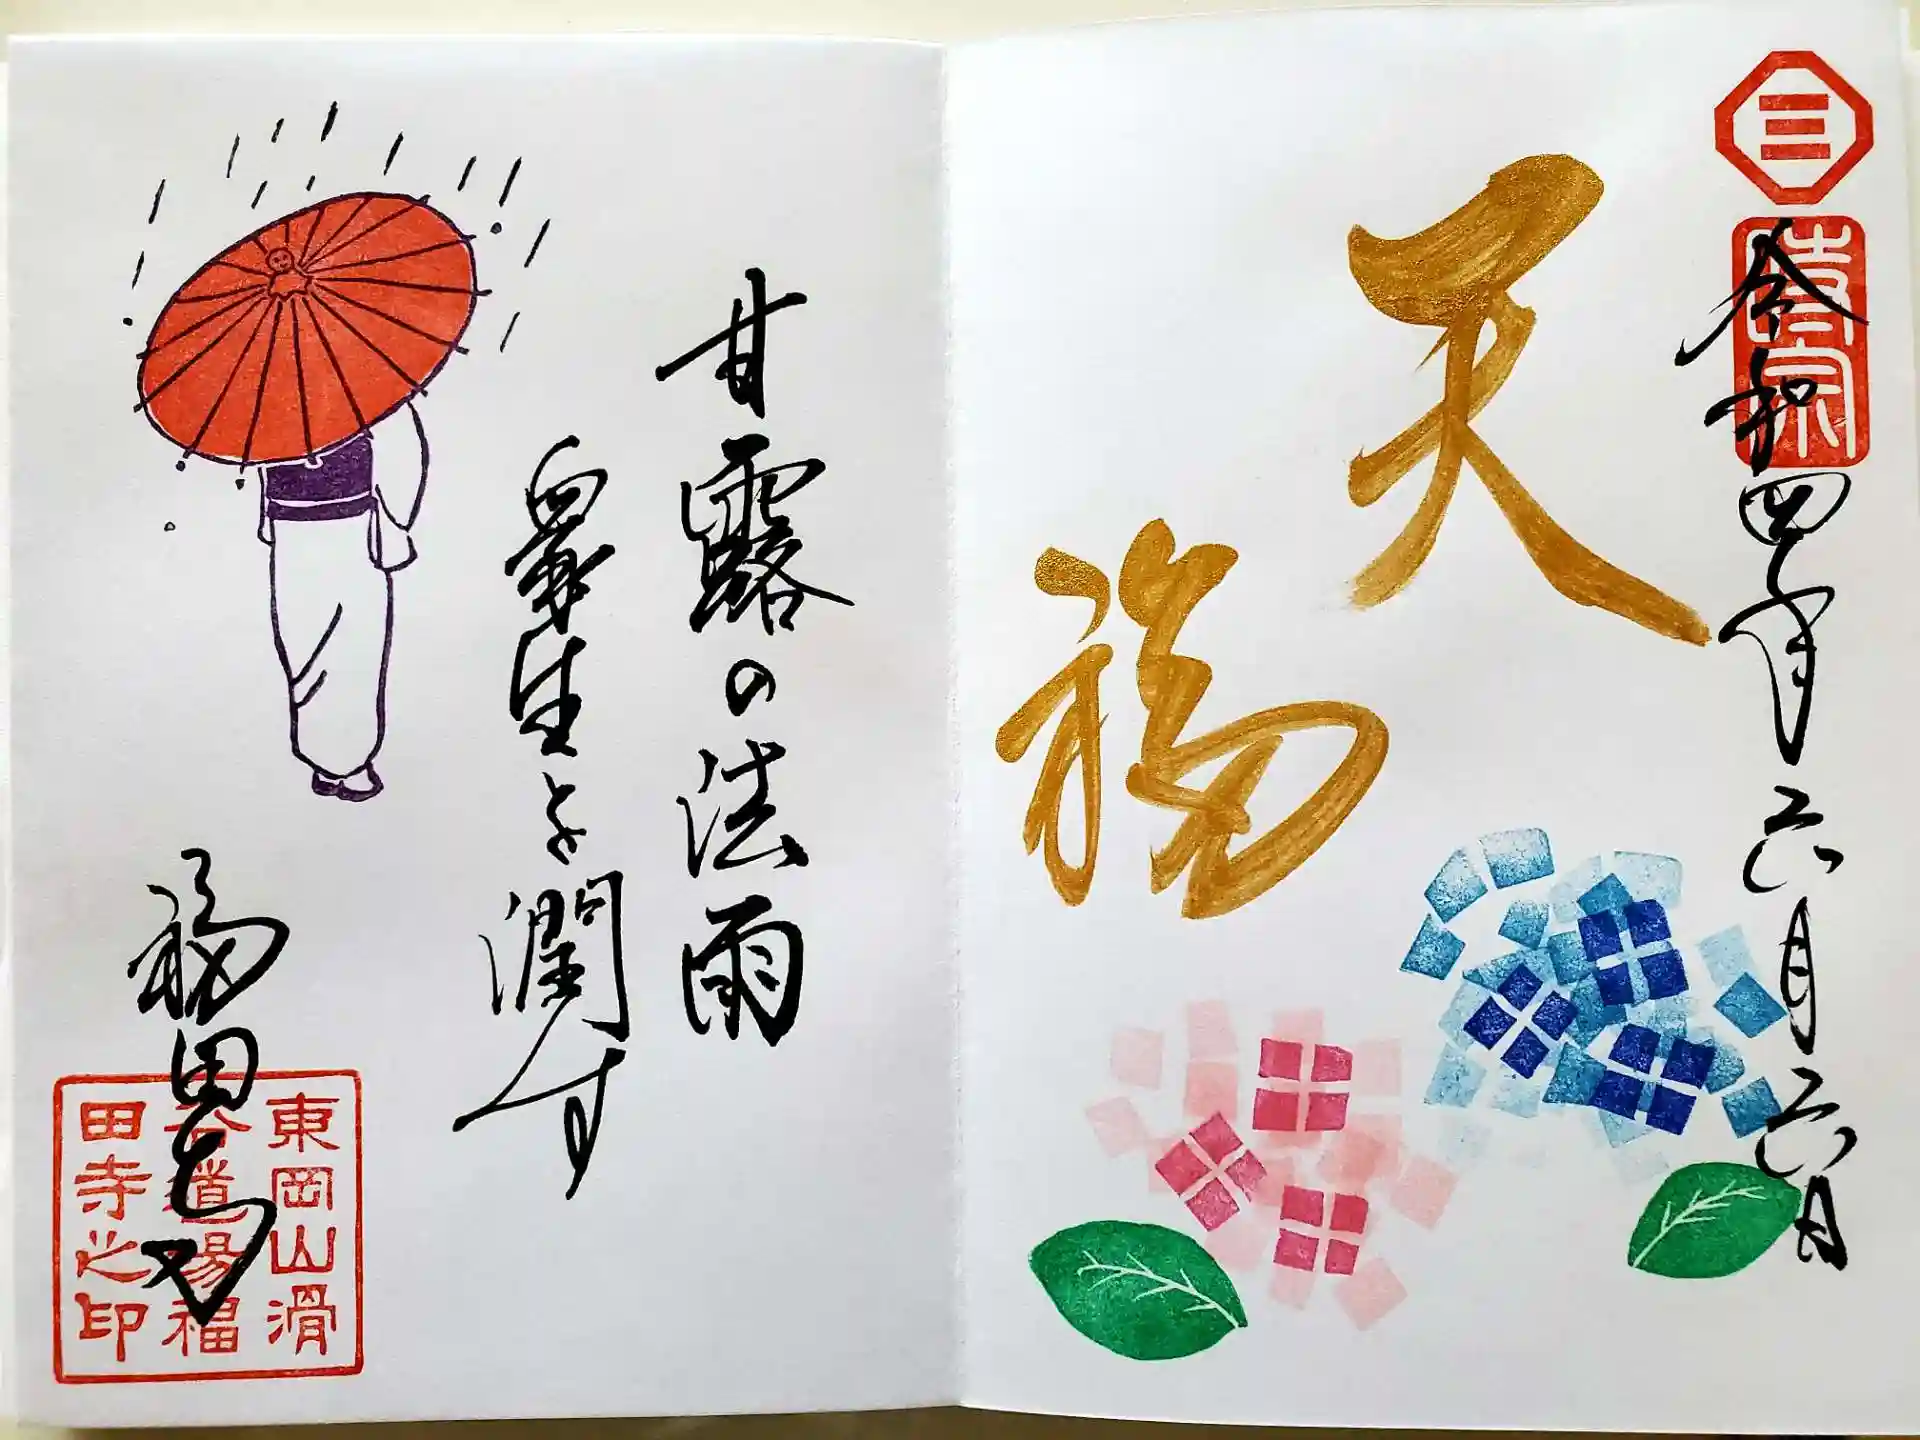 三
時宗
令和四年六月六日
天福
甘露の法雨
衆生を潤す
福田寺
東岡山滑
谷道場福
田寺之印